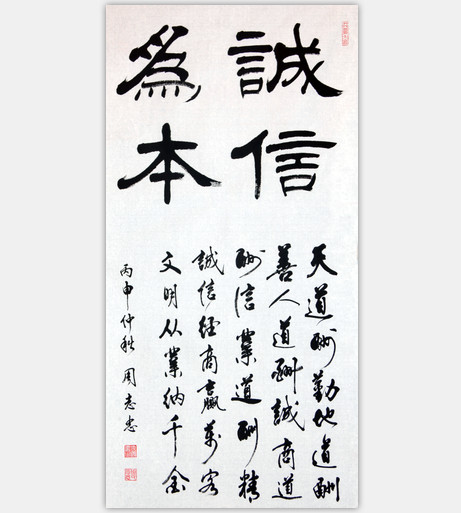 誠信
爲本
天道酬勤地道酬
善人道酬誠商道
酬信業道酬精
誠信經商贏萬客
文明从業納千金
丙申仲秋周志